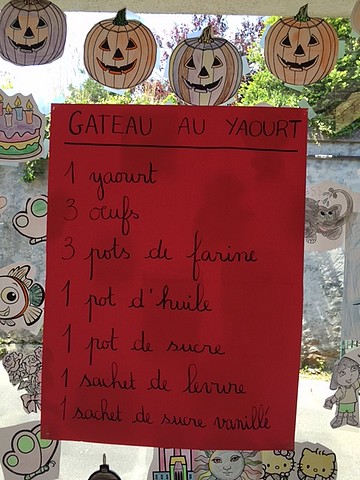 GATEAU AU YAOURT
1 yaourt
3 œufs
3 pots de farine
1 pot d'huile
1 pot de sucre
1 sachet de levure
1 sachet de sucre vanillé